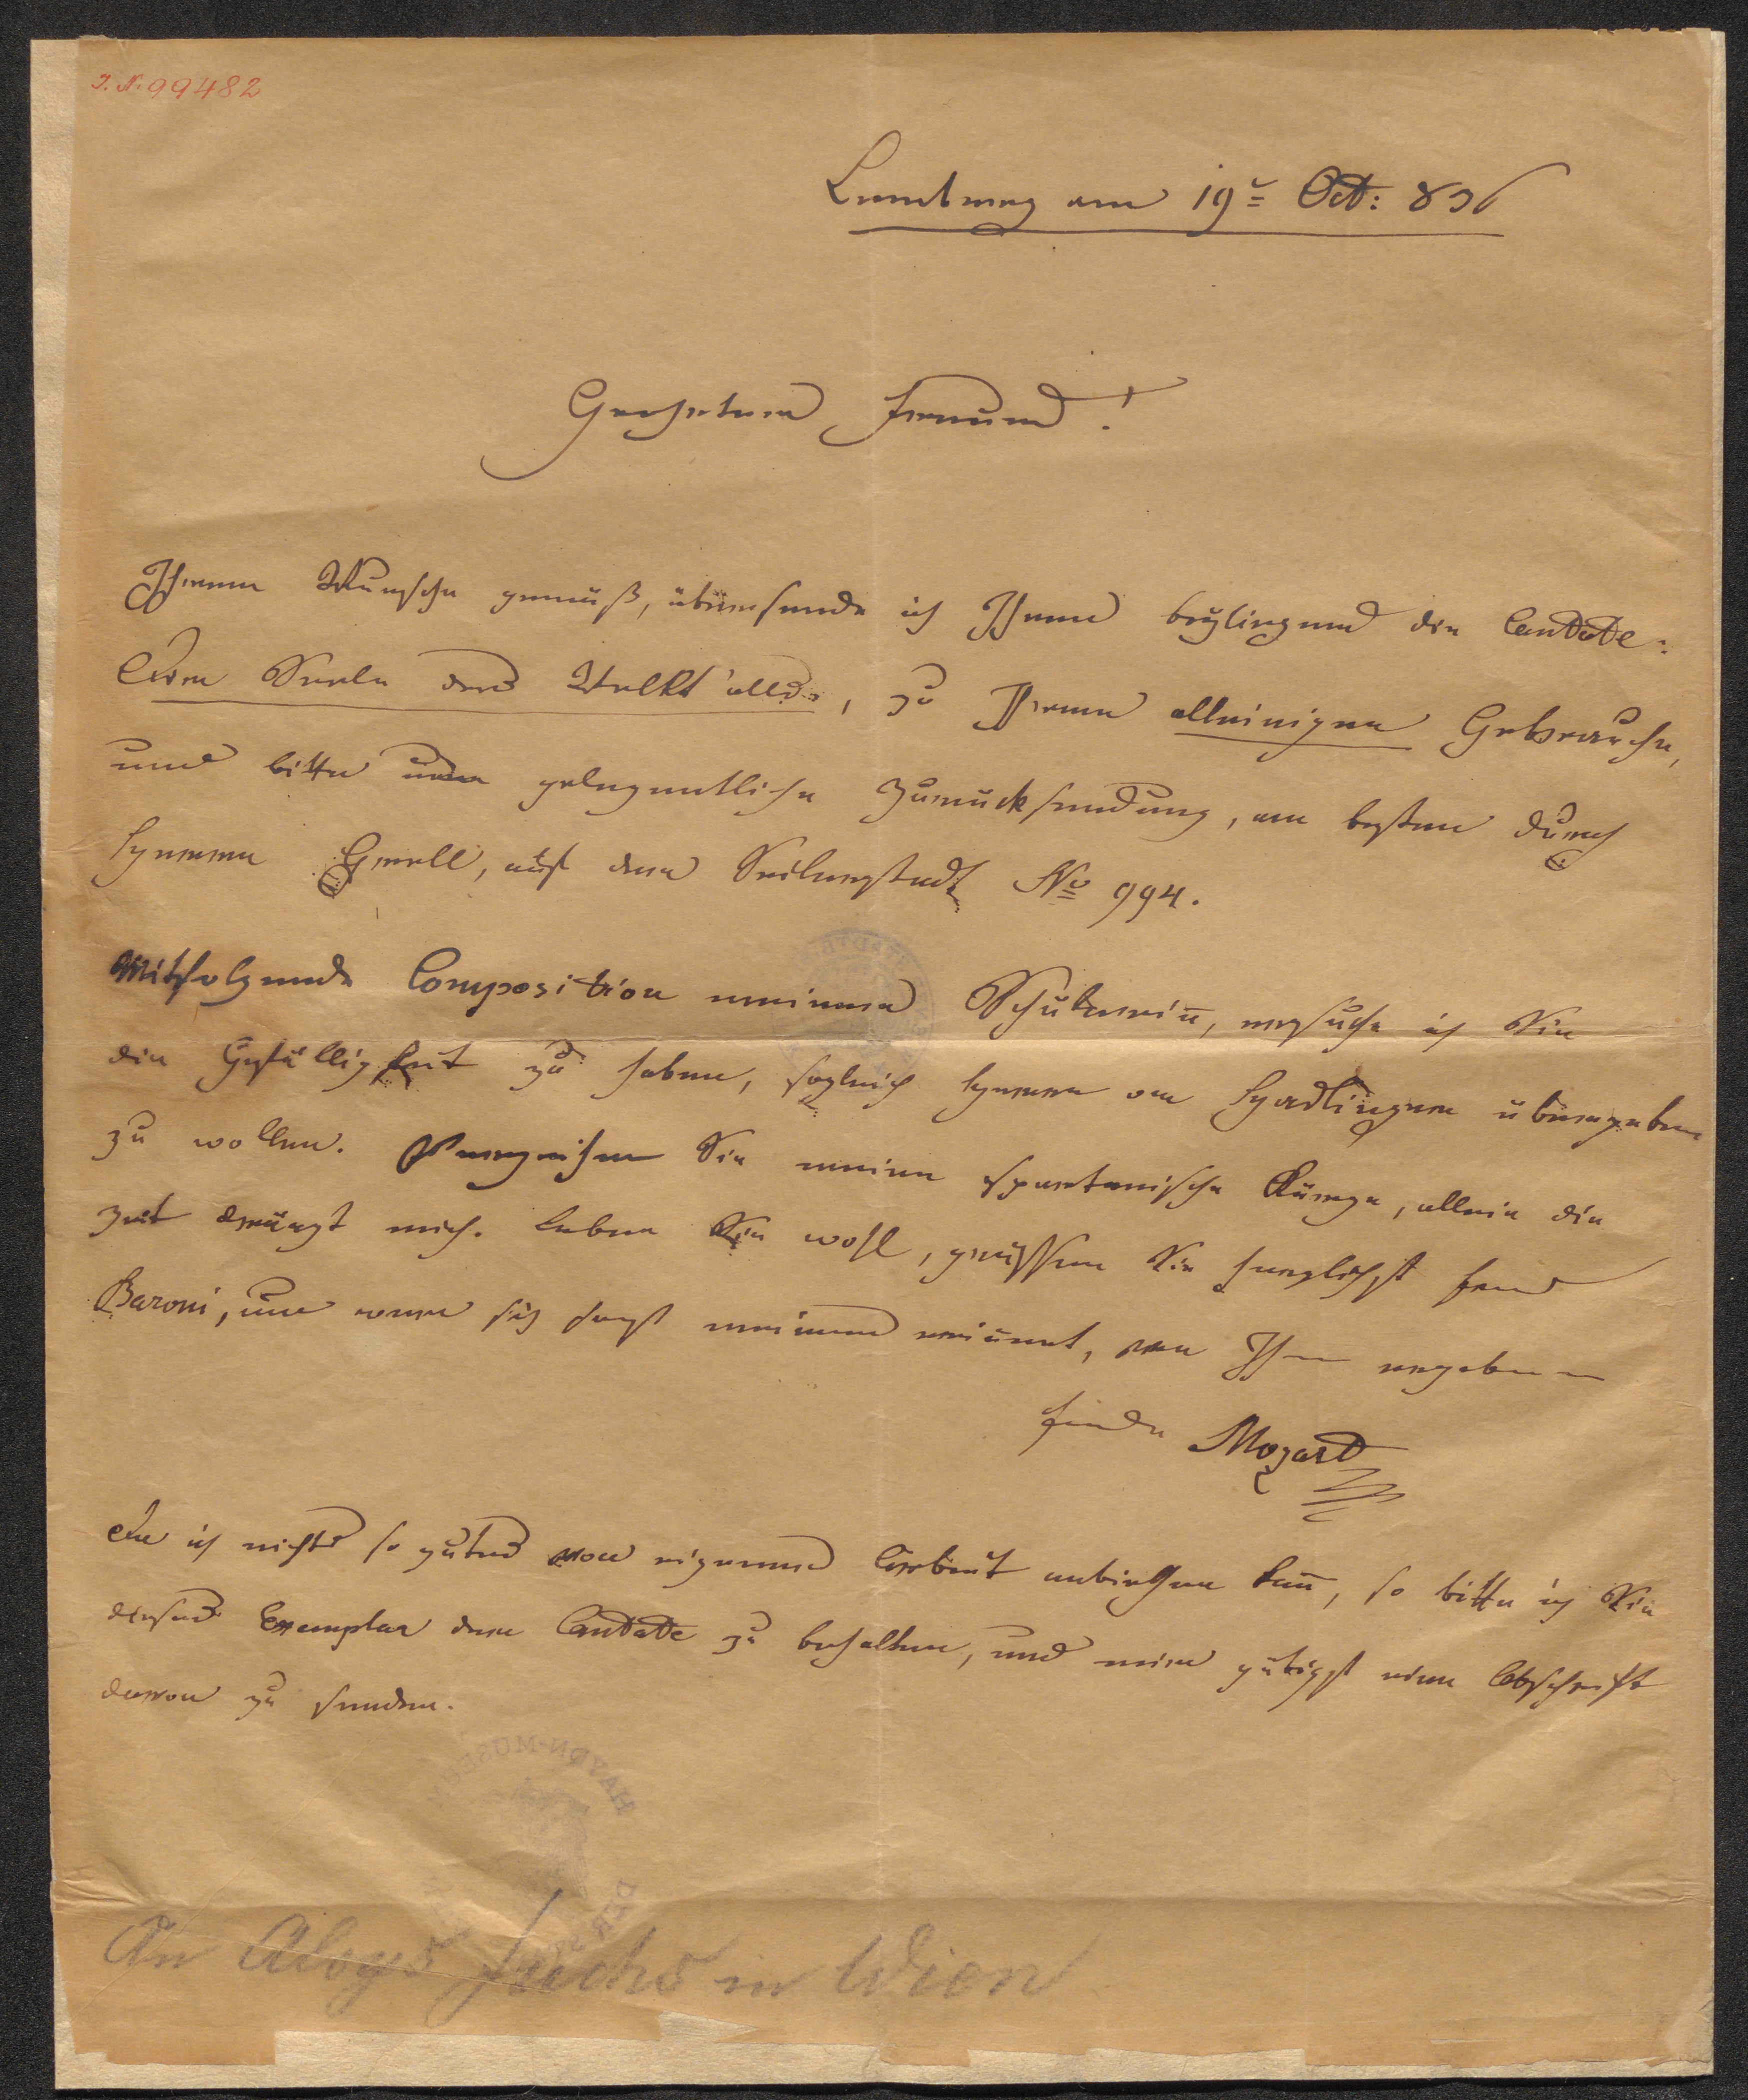 I. N. 99482
Lemberg am 19t Oct: 836
Geehrter Freund!
Ihrem Wunsche gemäß, übersende ich Ihnen beyliegend die Cantate:
Dir Seele des Weltalls, zu Ihrem alleinigen Gebrauche,
und bitte um gelegentliche Zurücksendung, am besten durch
Herrn, auf der Seilerstadt No 994.
Mitfolgende Composition meiner Schülerin, ersuche ich Sie
die Gefälligkeit zu haben, sogleich Herrn übergeben
zu wollen. Verzeihen Sie meine spartanische Kürze, allein die
Zeit drängt mich. Leben Sie wohl, grüssen Sie herzlichst
Baroni, und wer sich sonst meiner erinnert, von Ihrem ergebenen
Freunde Mozart
Da ich nichts so gutes von eigener Arbeit anbiethen kann, so bitte ich Sie
dieses Exemplar der Cantate zu behalten, und mir gütigst eine Abschrift
davon zu senden.
HAYDN-MUSEUM
DER
An Aloys Fuchs in Wien